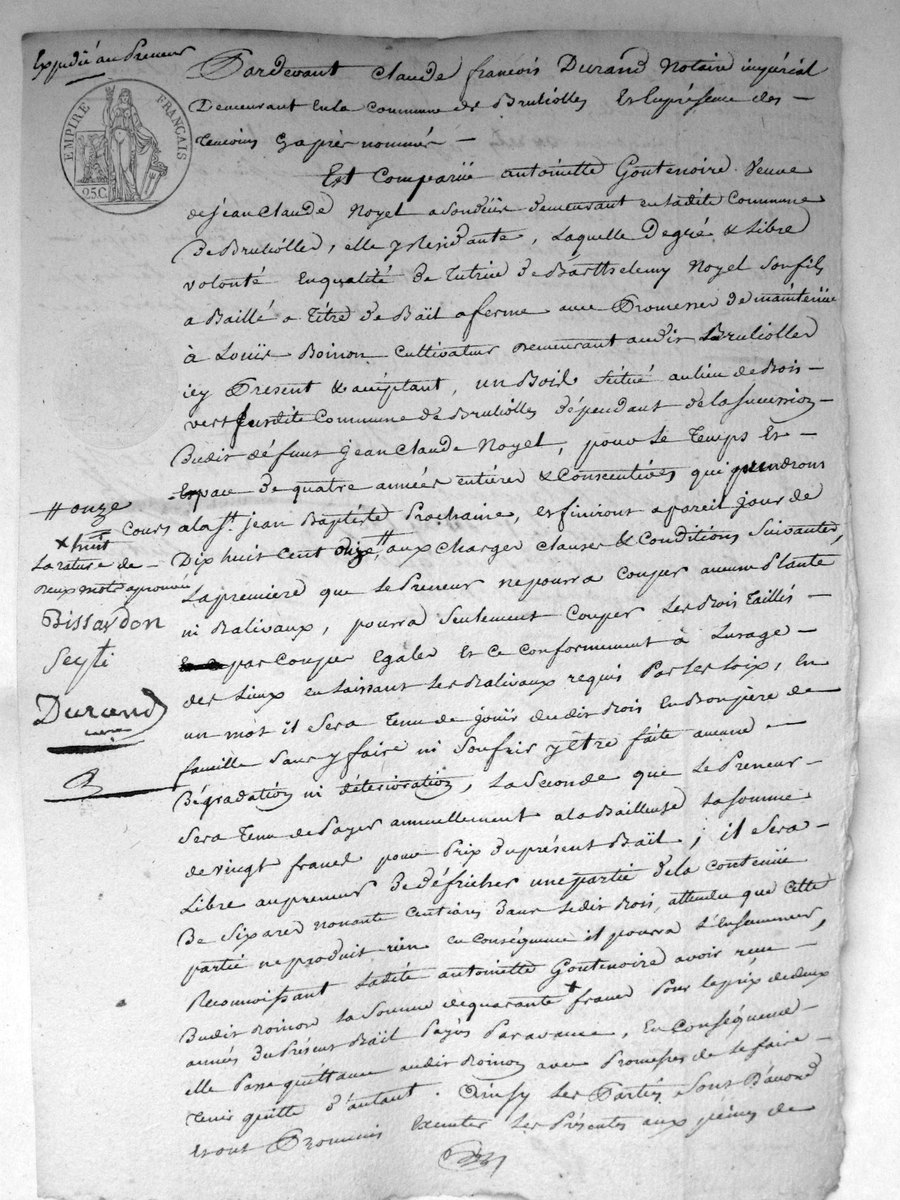 Expedié au Preneur
EMPIRE FRANÇAIS
25C.
Pardevant Claude francois Durand Notaire impérial
Demeurant En la Commune de Brulioles Et En présence des
temoins Cy après nommés
Est Comparüe antoinette Goutenoire Veuve
de jean Claude Noyel a Son décès demeurant en ladite Commune
De Brulioles, elle y Residante, Laquelle De gré & Libre
volonté En qualité De Tutrice De Barthelemy Noyel Son fils
a Baillé a Titre De Baïl a ferme avec Promesse De maintenüe
à Louïs Boinon Cultivateur Demeurant audit Brulioles
icy Present & acceptant, un Bois Situé au lieu de Bois
vert Susdite Commune de Brulioles dépendant de la Sucession
Dudit défunt jean Claude Noyel, pour le Temps Et
Espace De quatre années entières & Consecutives qui prendrons
Cours a la St. jean Baptiste Prochaine, et finiront a pareil jour de
Dix huit Cent onze # aux Charges Clauses & Conditions Suivantes,
La première que le Preneur ne pourra Couper aucune Plante
ni Balivaux, pourra Seulement Couper Les Bois Taillis
par Coupes Egales Et Ce Conformement à Lusage
des Lieux en Laissant Les Balivaux requis Par Les Loix, En
un mot il Sera Tenu de jouïr dudit Bois En Bon père de
famille Sans y faire ni Soufrir y être faite aucune
Dégradation ni détérioration, La Seconde que Le Preneur
Sera Tenu de Payer annuellement a la Bailleuse La Somme
de vingt francs pour Prix Du présent Baïl ; il Sera
Libre au preneur De défricher une partie de la contenüe
De Six ares nonante Centiares dans Ledit Bois, attendu que Cette
partie ne produit rien en conséquence il pourra L'Ensemencer,
Reconnoissant Ladite antoinette Goutenoire avoir reçu
Dudit Boinon La Somme de quarante + francs Pour le prix de deux
années Du Présent Baïl Payés Par avance, En Conséquence
elle Passe quittance audit Boinon avec Promesses de le faire
Tenir quitte d'autant. Ainsy Les Parties Sont D'accord
Et ont Promis Executer Les Présentes aux peines de
# onze
x huit
La rature de
deux mots aprouvée
Bissardon
Seyti
Durand